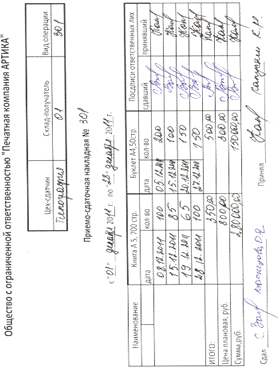 Общество с ограниченной ответственностью "Печатная компания АРТИКА"
Цех-сдатчик Склад-получатель Вид операции
Типография 01 301
Приемо-сдаточная накладная № 301
с "01" декабря 2011 г. по "28" декабря 2011 г.
Наименование Книга А 5, 700 стр. Буклет А4,50 стр. Подписи ответственных лиц
дата кол-во дата кол-во сдавший принявший
08.12.2011 100 05.12.2011 200
15.12.2011 85 15.12.2011 100
19.12.2011 65 20.12.2011 150
28.12.2011 100 27.12.2011 150
ИТОГО: 350,00 600,00
Цена плановая, руб. 800,00 300,00
Сумма, руб. 280000,00
Сдал Принял